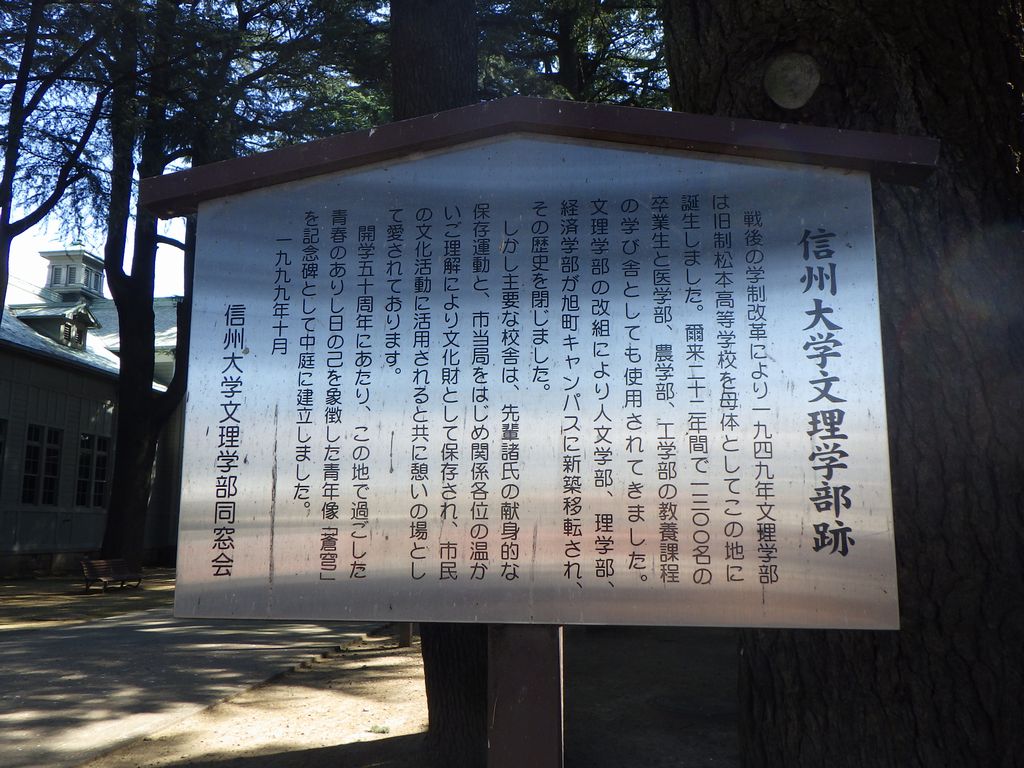 信州大学文理学部跡
戦後の学制改革により一九四九年文理学部
は旧制松本高等学校を母体としてこの地に
誕生しました。爾来二十二年間で一三〇〇名の
卒業生と医学部、農学部、工学部の教養課程
の学び舎としても使用されてきました。
文理学部の改組により人文学部、理学部、
経済学部が旭町キャンパスに新築移転され、
その歴史を閉じました。
しかし主要な校舎は、先輩諸氏の献身的な
保存運動と、市当局をはじめ関係各位の温か
いご理解により文化財として保存され、市民
の文化活動に活用されると共に憩いの場とし
て愛されております。
開学五十周年にあたり、この地で過ごした
青春のありし日の己を象徴した青年像「蒼穹」
を記念碑として中庭に建立しました。
一九九九年十月
信州大学文理学部同窓会